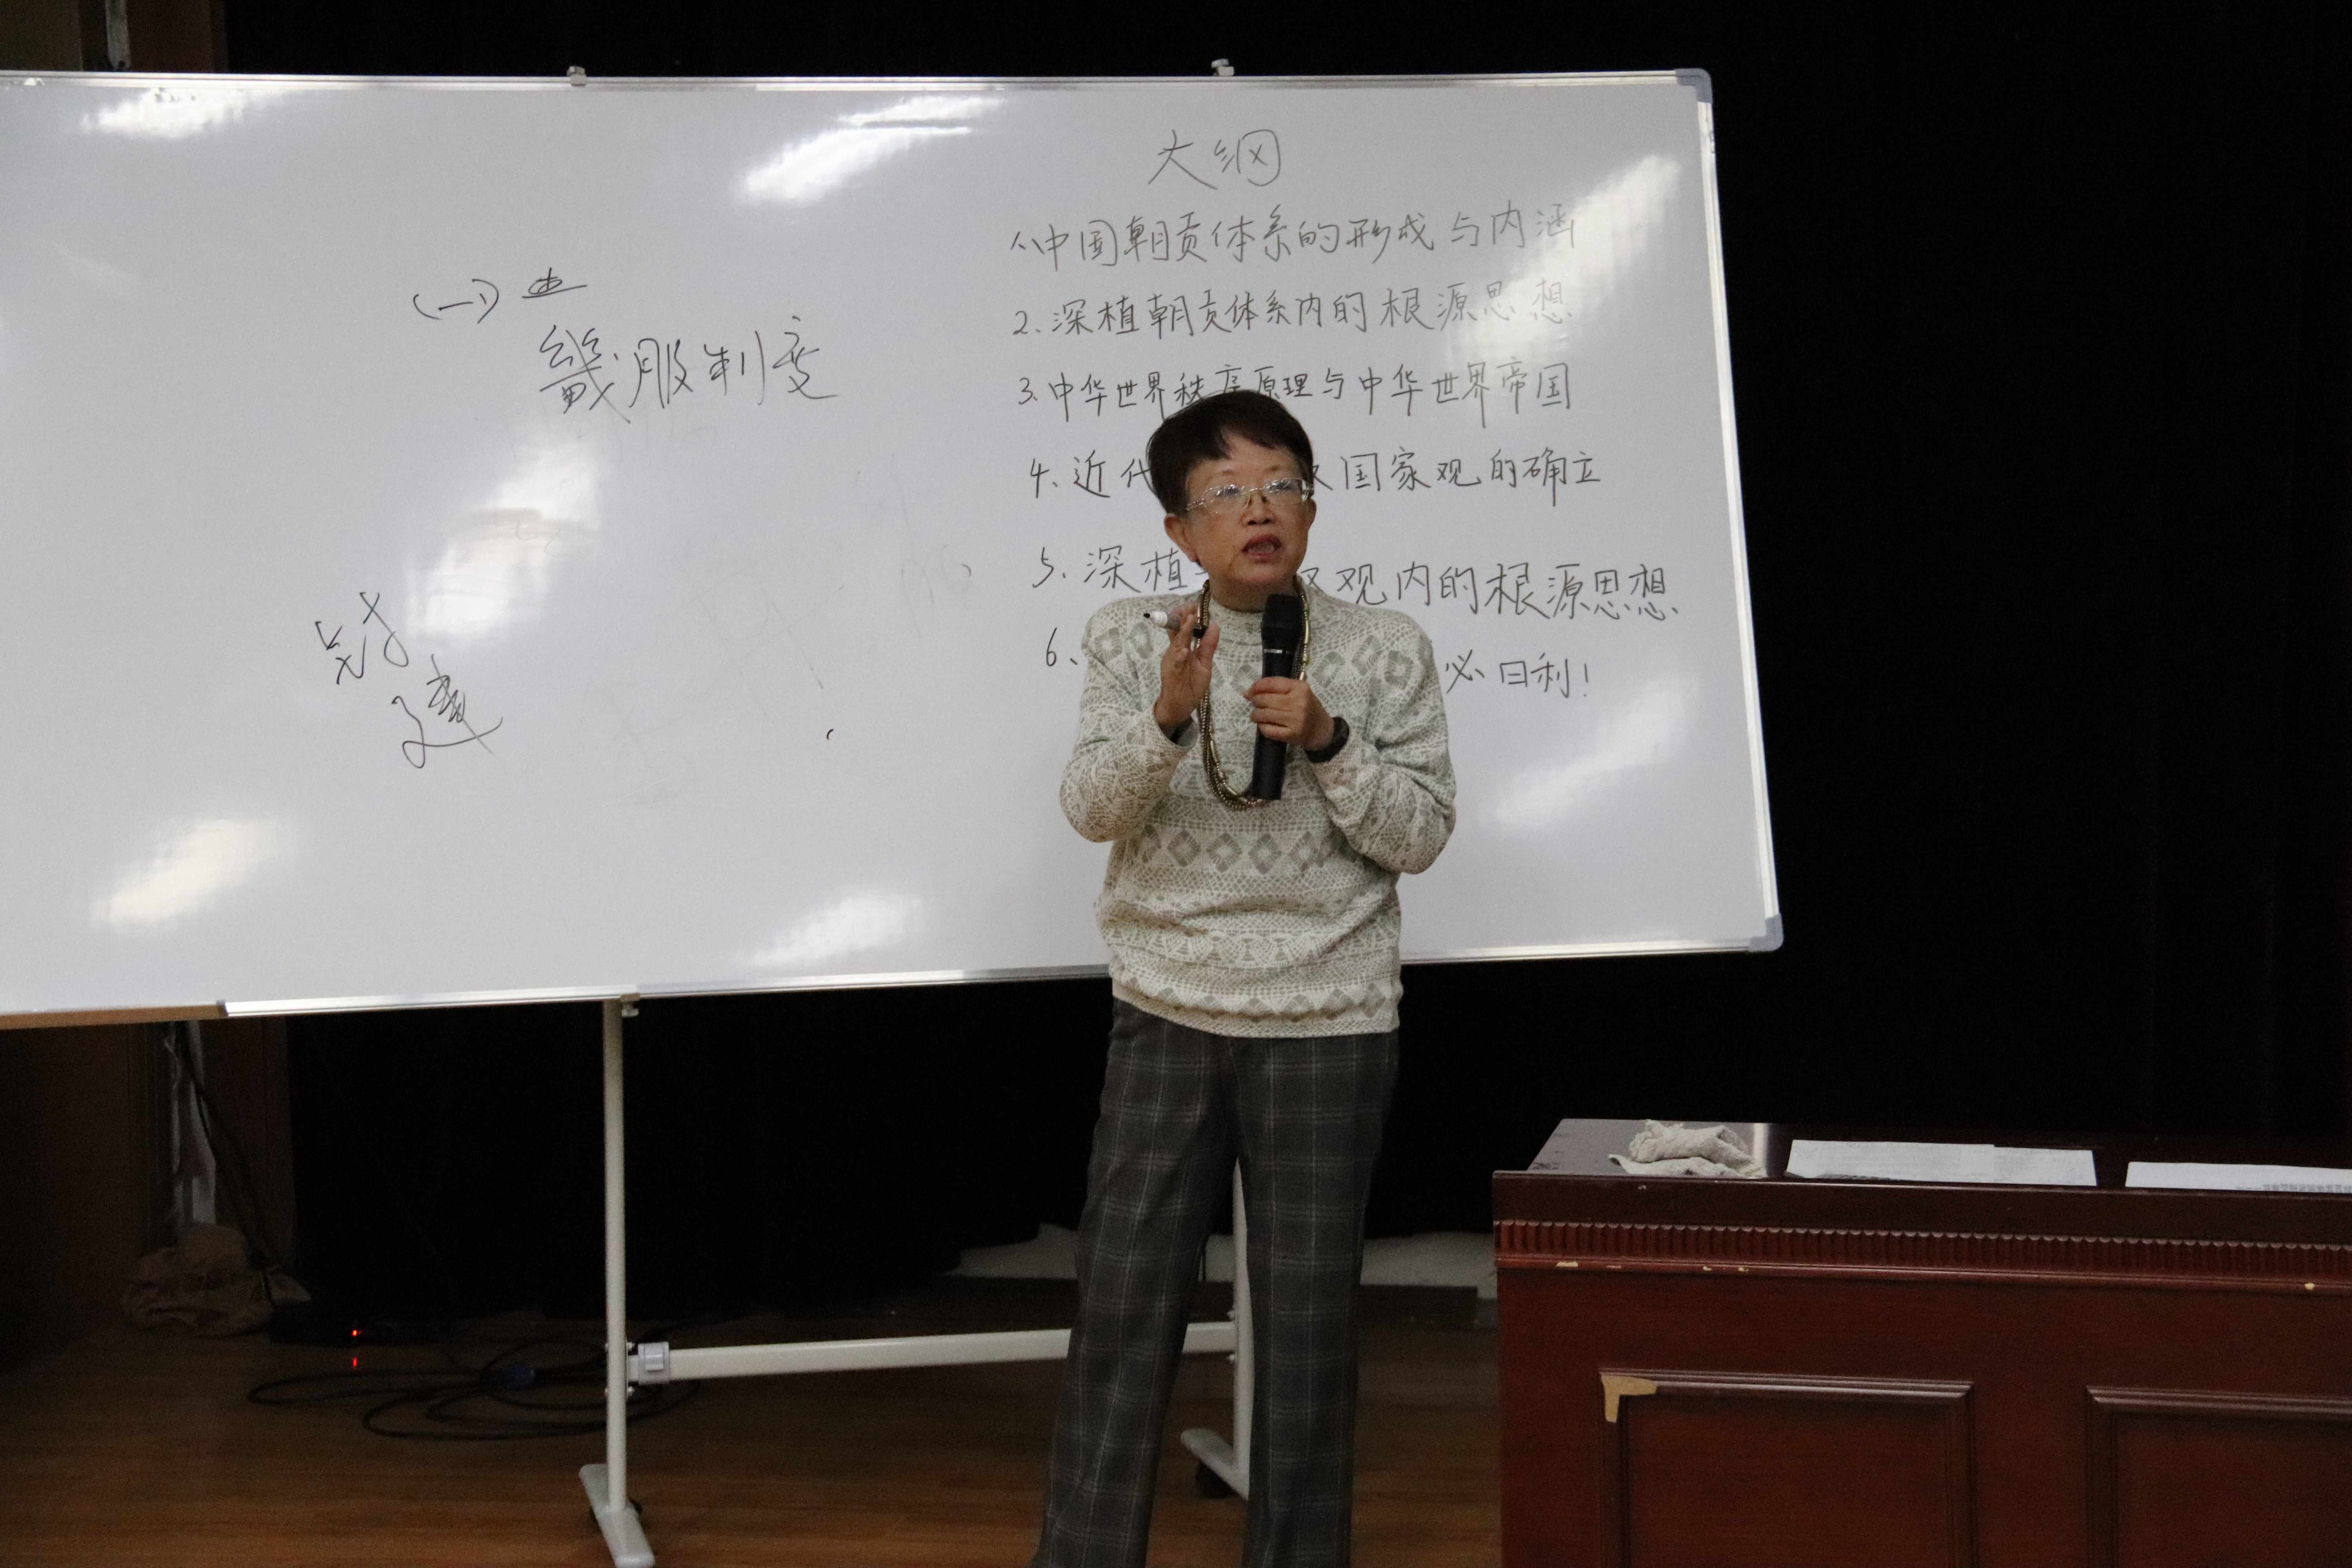 (一)
畿服制度
封
建
大纲
1.中国朝贡体系的形成与内涵
2.深植朝贡体系内的根源思想
3.中华世界秩序原理与中华世界帝国
4.近代 国家观的确立
5.深植 观内的根源思想
6、 必曰利!